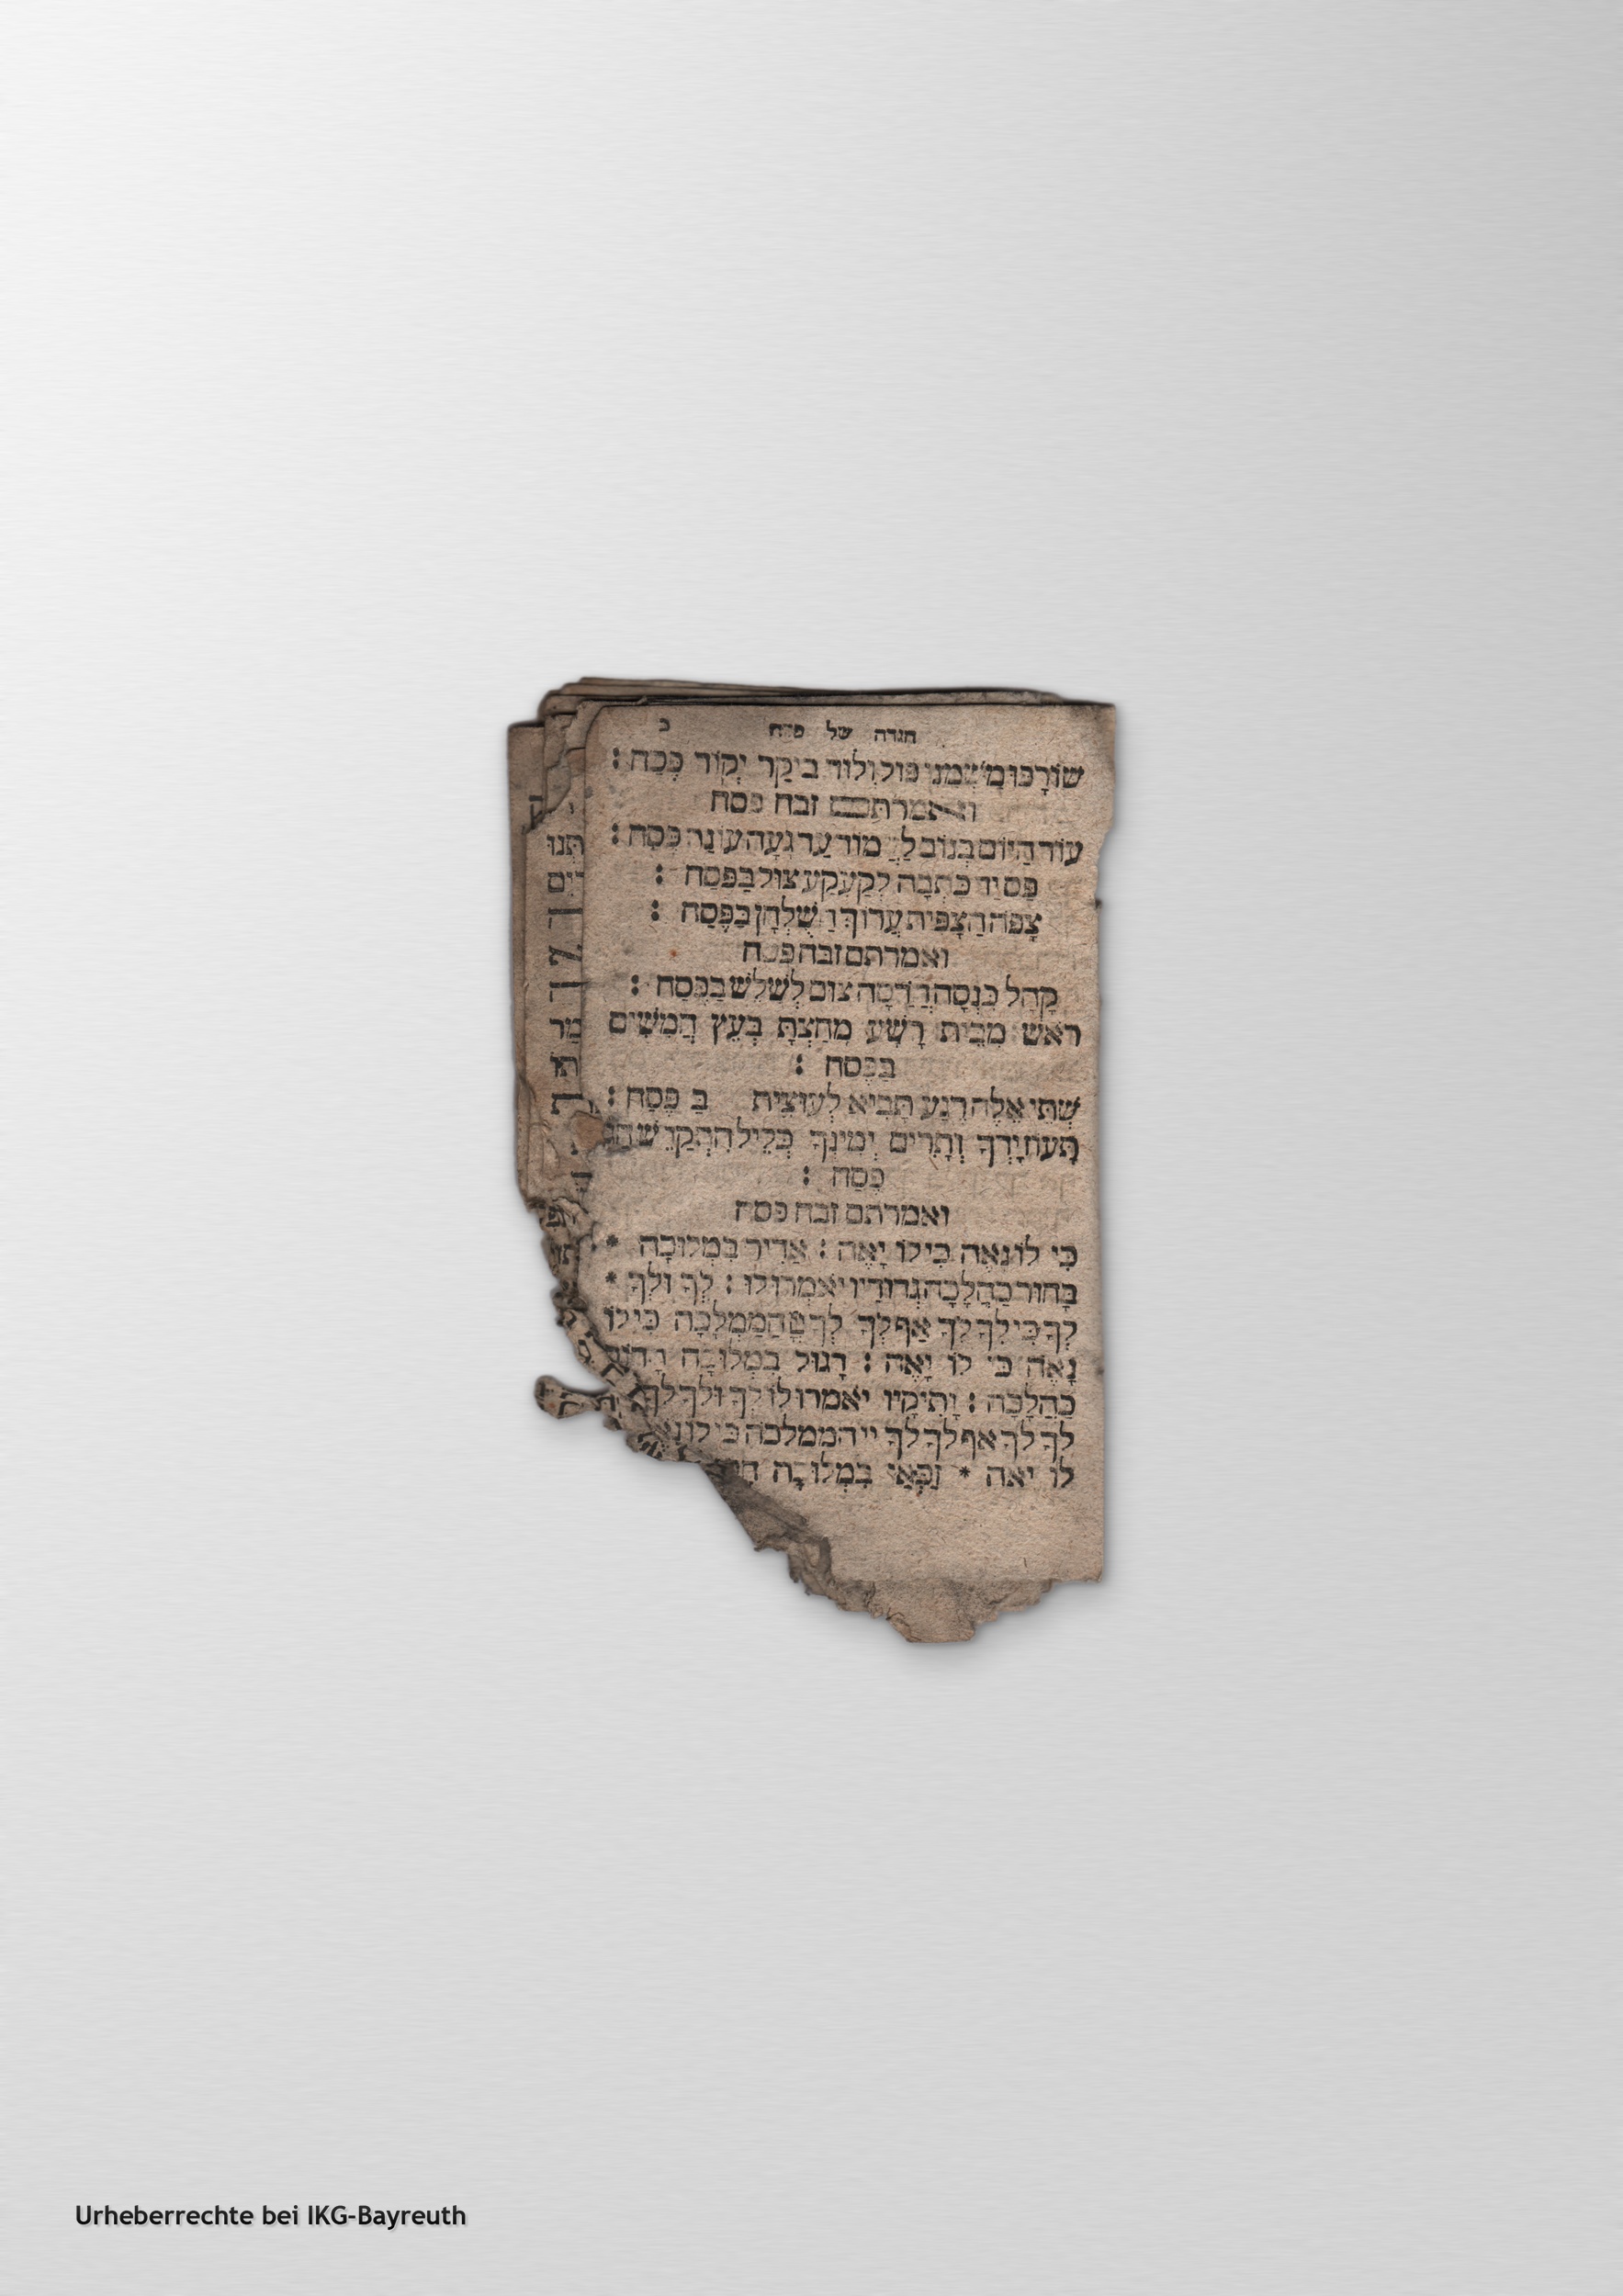 הגדה של פסח כ
שורף במשמני פול ולוד ביקד יקוד פסח :
ואמרתם זבח פסח
עוד היום בנוב לעמוד עד געה עונת פסח :
פס יד כתבה לקעקע צול בפסח :
צפה הצפית ערוך השלחן בפסח :
ואמרתם זבח פסח
קהל כנסה הדסה צום לשלש בפסח :
ראש מבית רשע מחצת בעץ חמשים
בפסח :
שתי אלה רגע תביא לעוצית ב פסח :
תעוז ידך ותרים ימינך כליל התקדש חג
פסח :
ואמרתם זבח פסח
כי לו נאה כי לו יאה : אדיר במלוכה *
בחור כהלכה גדודיו יאמרו לו : לך ולך *
לך כי לך לך אף לך לך הממלכה כי לו
נאה כי לו יאה : דגול במלוכה הדור
כהלכה : ותיקיו יאמרו לו לך ולך לך
לך לך אף לך לך יי הממלכה כי לו נא
לו יאה * זכאי במלוכה
תנו
ים
מר
תו
Urheberrechte bei IKG-Bayreuth